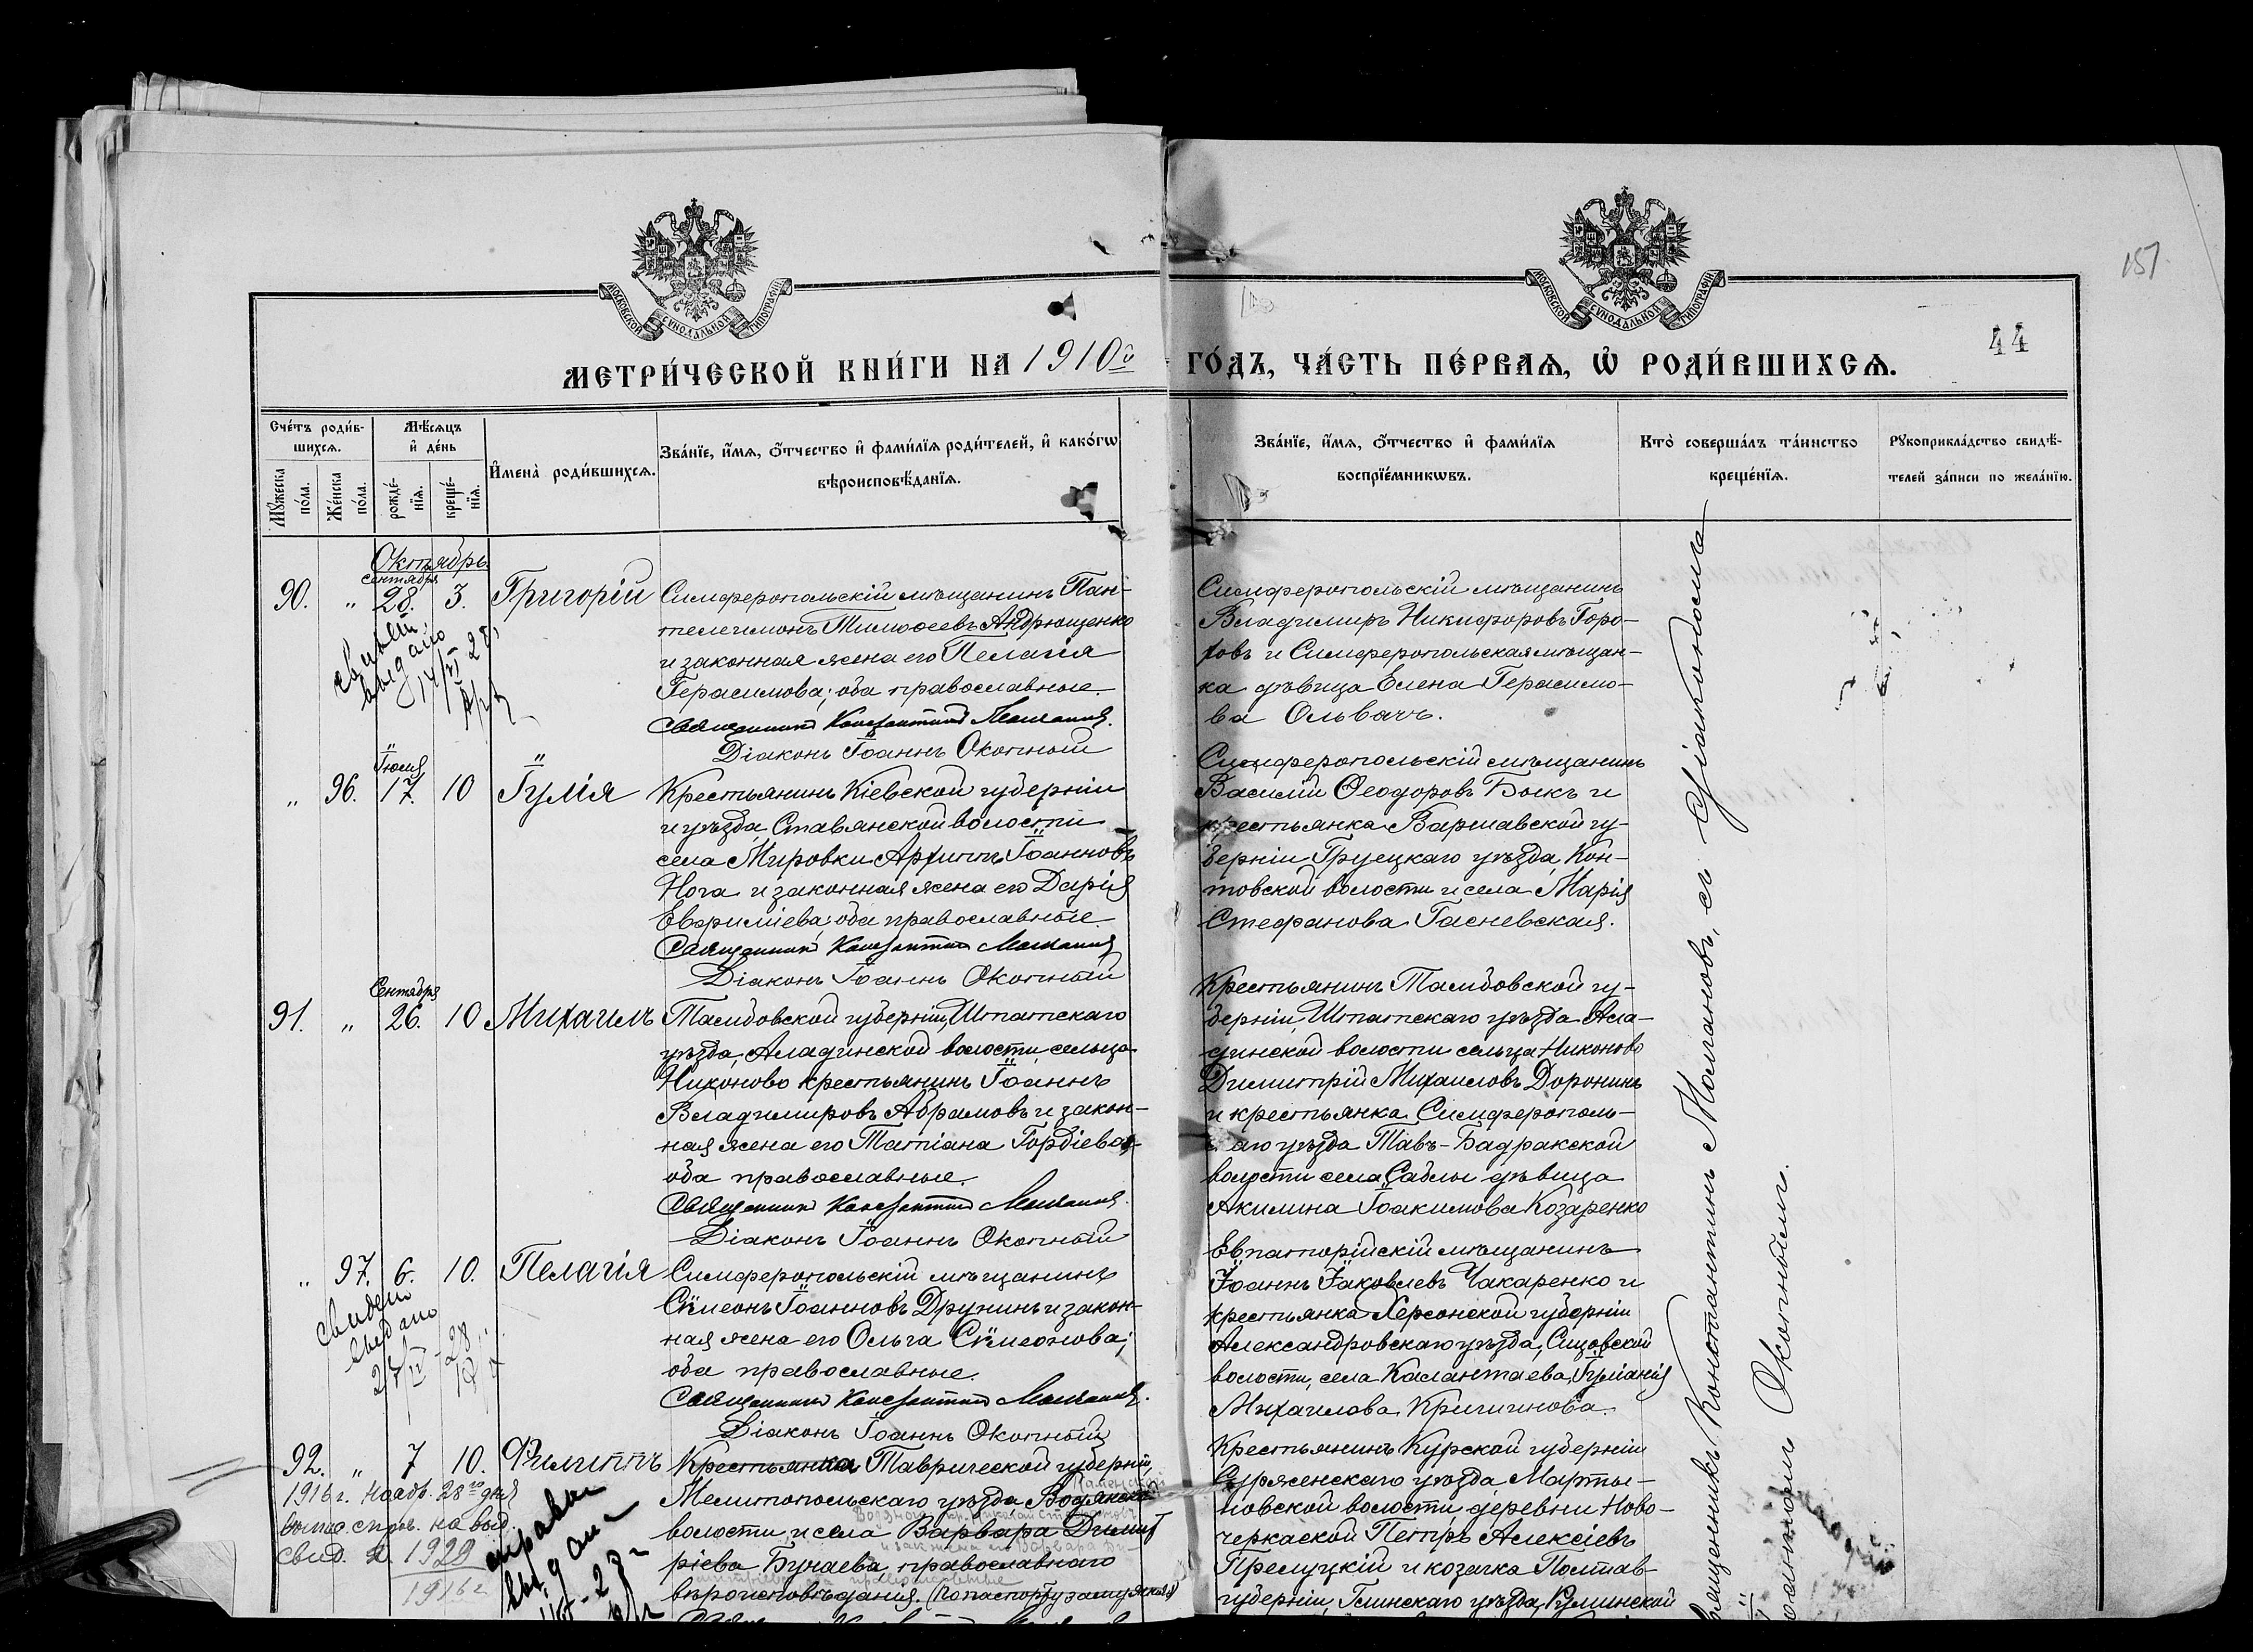 157
44
МОСКОВСКОЙ СѴНОДАЛЬНОЙ ТИПОГРАФІИ
МОСКОВСКОЙ СѴНОДАЛЬНОЙ ТИПОГРАФІИ
МЕТРИ́ЧЕСКОЙ КНИ́ГИ НА 1910й ГО́ДЪ, ЧА́СТЬ ПЕ́РВАѦ, Ѽ РОДИ́ВШИХСѦ.
Счéтъ роди́в-
шихсѧ.
Мꙋ́жеска
по́ла.
Же́нска
по́ла.
Мѣ́сѧцъ
и҆ де́нь
рожде́-
нїѧ.
креще́-
нїѧ.
И҆мена̀ роди́вшихсѧ.
Зва́нїе, и҆́мѧ, ѻ҆́тчество и҆ фами́лїѧ роди́телей, и҆ како́гѡ
вѣроисповѣ́данїѧ.
Зва́нїе, и҆́мѧ, ѻ҆́тчество и҆ фами́лїѧ
воспрїе́мникѡвъ.
Кто̀ соверша́лъ та́инство
креще́нїѧ.
Рꙋкоприкла́дство свидѣ́-
телей за́писи по жела́нїю.
Октябрь
сентября
90. " 28. 3. Григорій
Симферопольскій мѣщанинъ Пан-
телеимонъ Тимоѳеевъ Андрющенко
и законная жена его Пелагія
Герасимова; оба православные.
Священникъ Константинъ Молчановъ.
Діаконъ Іоаннъ Окопный
Симферопольскій мѣщанинъ
Владимиръ Никифоровъ Горо-
ховъ и Симферопольская мѣщан-
ка дѣвица Елена Герасимо-
ва Ольвачъ.
выдано
14/VI 28
Іюля
" 96. 17. 10 Іулія
Крестьянинъ Кіевской губерніи
и уѣзда, Ставянской волости
села Мировки Архиппъ Іоанновъ
Нога и законная жена его Дарія
Евфиміева; оба православные.
Священникъ Константинъ Молчановъ
Діаконъ Іоаннъ Окопный
Симферопольскій мѣщанинъ
Василій Ѳеодоровъ Быкъ и
крестьянка Варшавской гу-
берніи Груецкаго уѣзда, Кон-
товской волости и села Марія
Стефанова Гасневская.
Сентября
91. " 26. 10 Михаилъ
Тамбовской губерніи, Шпатскаго
уѣзда, Аладинской волости, сельца
Никоново крестьянинъ Іоаннъ
Владимировъ Абрамовъ и закон-
ная жена его Татіана Гордіева;
оба православные.
Священникъ Константинъ Молчановъ.
Діаконъ Іоаннъ Окопный
Крестьянинъ Тамбовской гу-
берніи, Шпатскаго уѣзда Ала-
динской волости сельца Никоново
Димитрій Михаиловъ Доронинъ
и крестьянка Симферополь-
скаго уѣзда Тавъ-Бадракской
волости села Саблы дѣвица
Акилина Іоакимова Козаренко
" 97. 6. 10. Пелагія
Симферопольскій мѣщанинъ
Сѷмеонъ Іоанновъ Друнинъ и закон-
ная жена его Ольга Сѷмеонова;
оба православные.
Священникъ Константинъ Молчановъ.
Діаконъ Іоаннъ Окопный
Евпаторійскій мѣщанинъ
Іоаннъ Іаковлевъ Чакаренко и
крестьянка Херсонской губерніи
Александровскаго уѣзда, Сицовской
волости, села Калантаева, Іуліанія
Михаилова Кричинова.
выдано
92. " 7 10. Филиппъ
Крестьянка Таврической губерніи,
Мелитопольскаго уѣзда Водянской
волости и села Варвара Димит
ріева Бунаева православнаго
вѣроисповѣданія. (По паспорту замужняя)
Крестьянинъ Курской губерніи
Сурженскаго уѣзда Марты-
новской волости, деревни Ново-
черкаской Петръ Алексіевъ
Прелуцкій и козачка Полтав-
губерніи, Глинскаго уѣзда, Рулинской
1916 г. Нояб. 28го дня
свид. 1929
1916 г
справка
выдана
Священникъ Константинъ Молчановъ, съ діакономъ
Іоанномъ Окопнымъ.